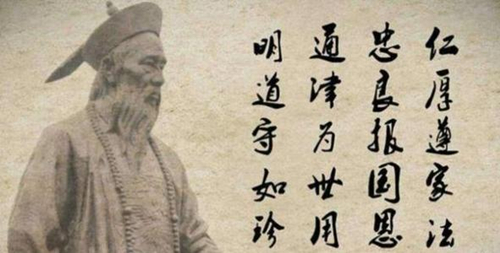 仁厚遵家法
忠良报国恩
通津为世用
明道守如珍